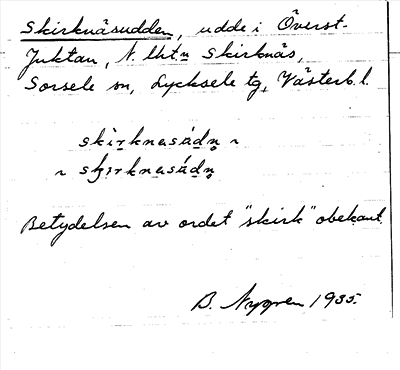 Skirknäsudden, udde i Överst-
Juktan, N. lht.n Skirknäs,
Sorsele sn, Lycksele tg, Västerb. l.
skìrknasádn̥ ~
~ sʒìrknasádn̥
Betydelsen av ordet "skirk" obekant.
B. Nygren 1935.